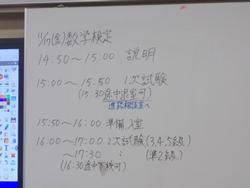 11/17(金)数学検定
14:50～15:00 説明
15:00～15:50 1次試験
(15:30途中退室可)
進路相談室へ
15:50～16:00 準備・入室
16:00～17:00 2次試験(3,4,5級)
～17:30 〃 (準2級)
(16:30途中退練可)